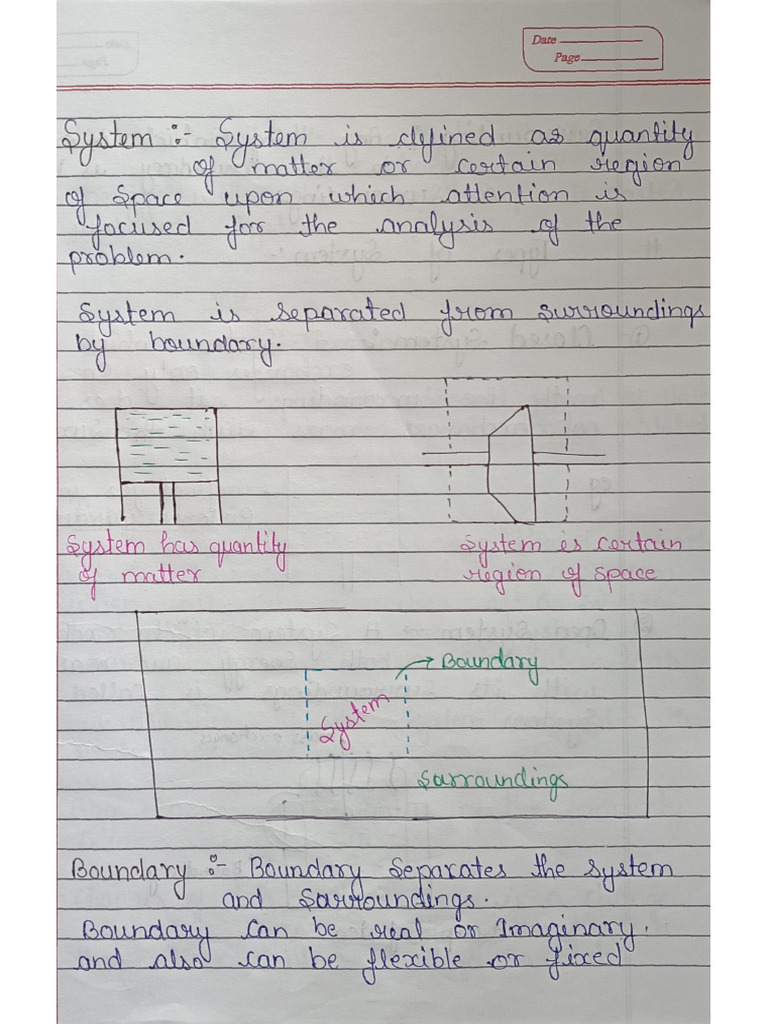 Date
Page
System :- System is defined as quantity
of matter or certain region
of space upon which attention is
focused for the analysis of the
problem.
System is separated from surroundings
by boundary.
System has quantity
of matter
System is certain
region of space
Boundary
System
Sarroundings
Boundary :- Boundary separates the system
and sarroundings.
Boundary can be real or Imaginary.
and also can be flexible or fixed